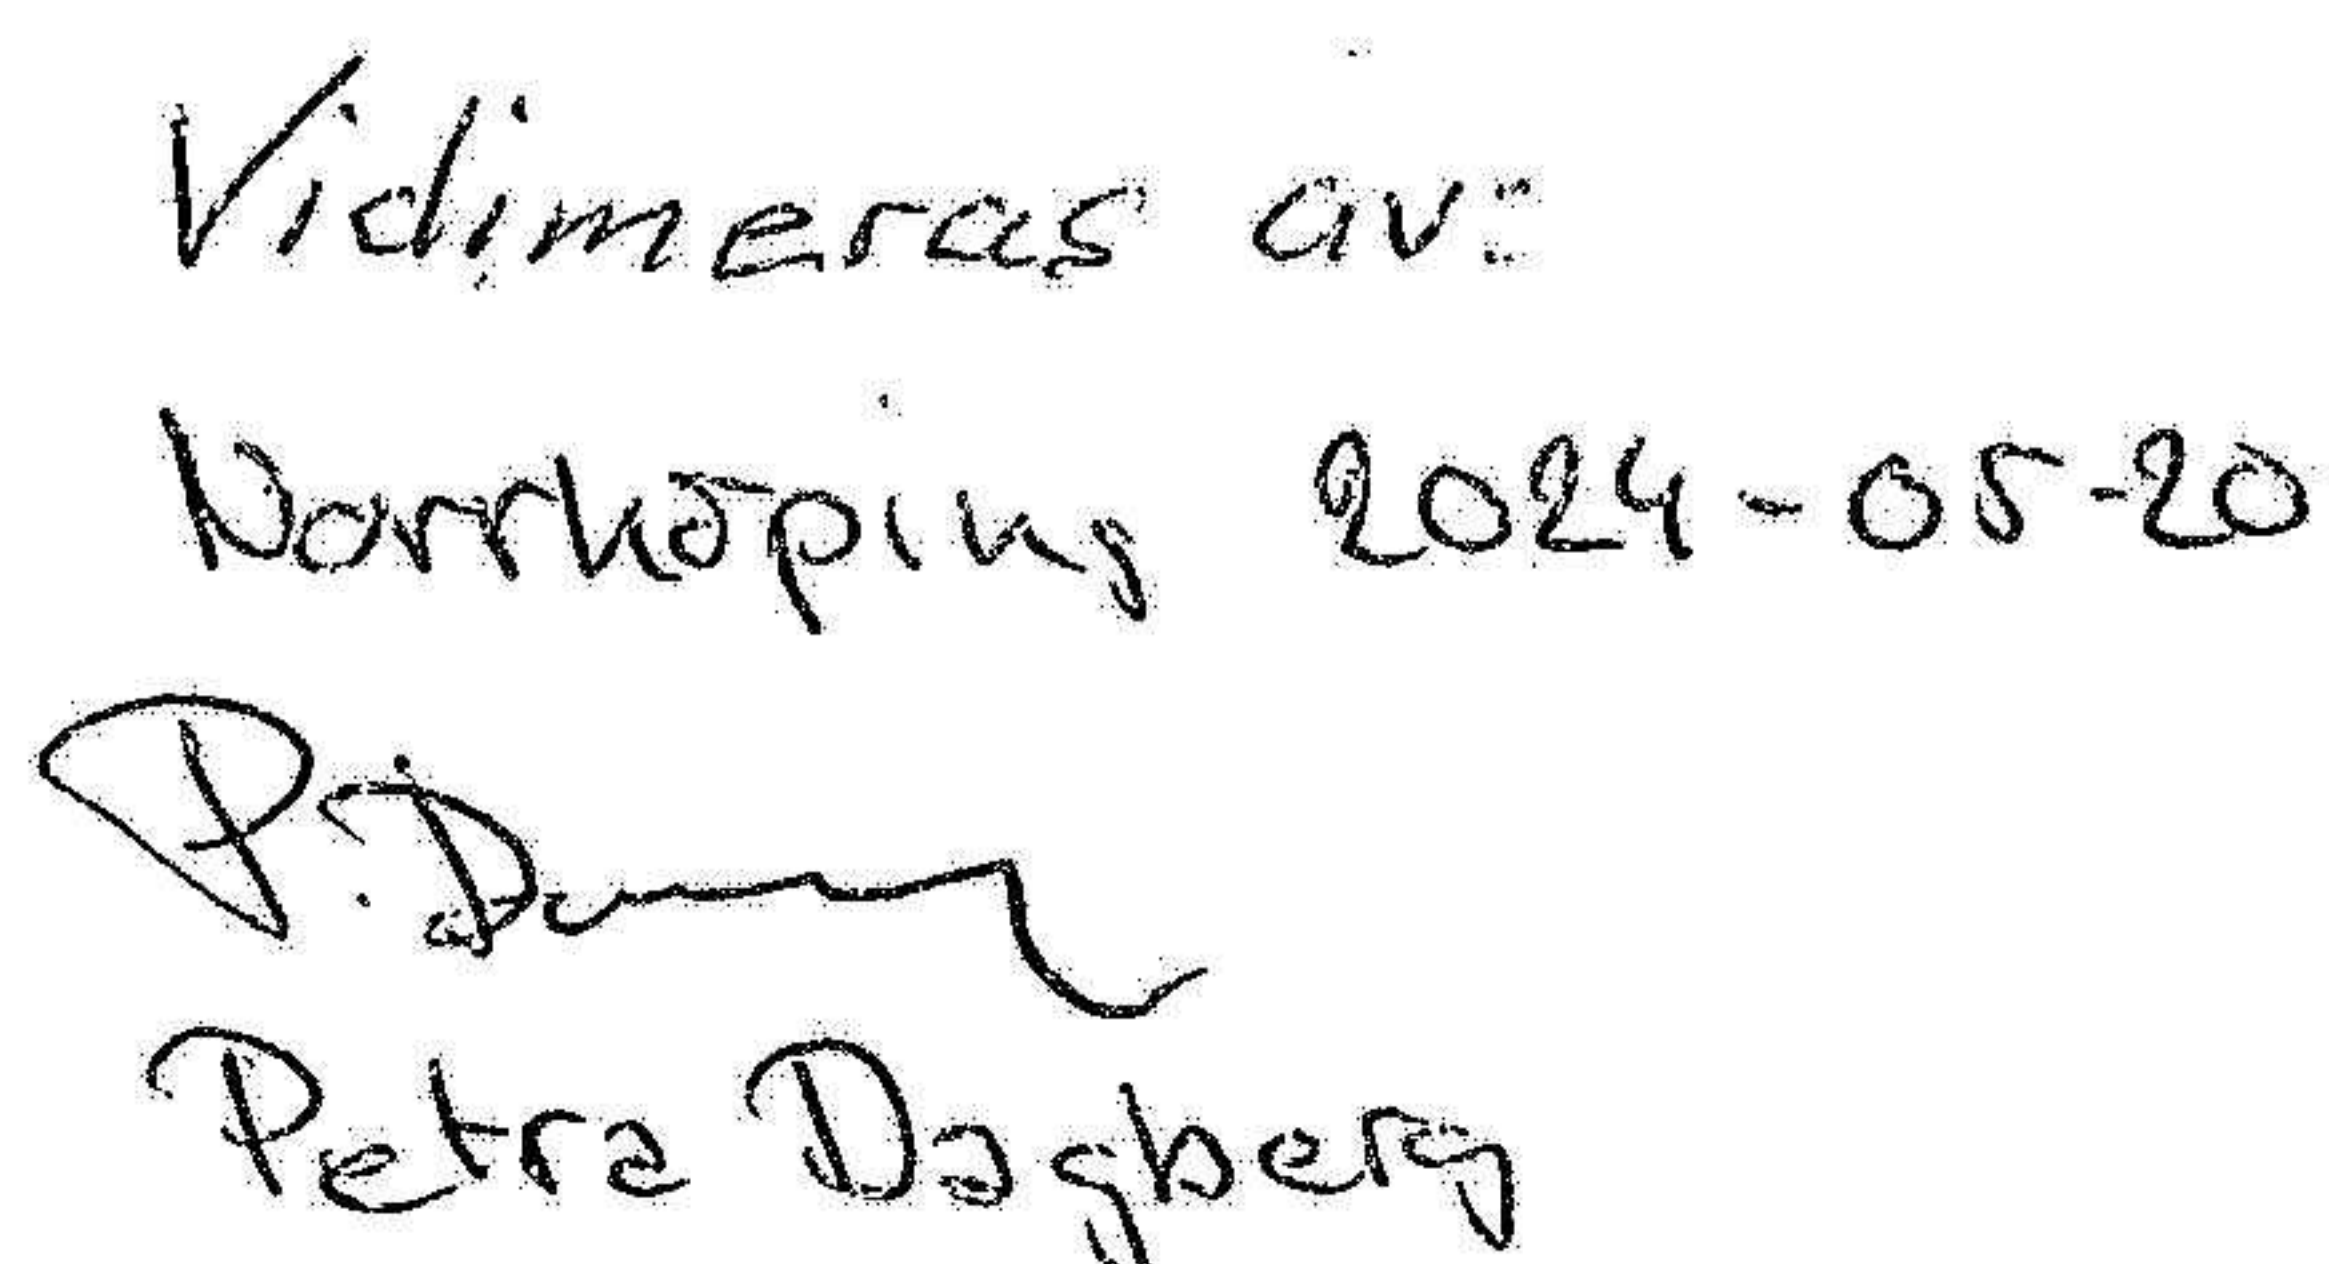 Vidimeras av:
Norrköping 2024-05-20
P. D
Petra Dagberg